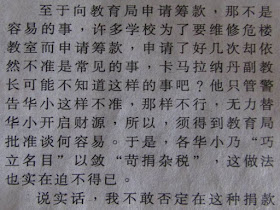 至于向教育局申请筹款，那不是
容易的事，许多学校为了要维修危楼
教室而申请筹款，申请了好几次却依
然不准是常见的事，卡马拉纳丹副教
长可能不知道这样的事吧？他只管警
告华小这样不准，那样不行，无力替
华小开启财源，所以，须得到教育局
批准谈何容易。于是，各华小乃“巧
立名目”以敛“苛捐杂税”，这做法
也实在迫不得已。
说实话，我不敢否定在这种捐款